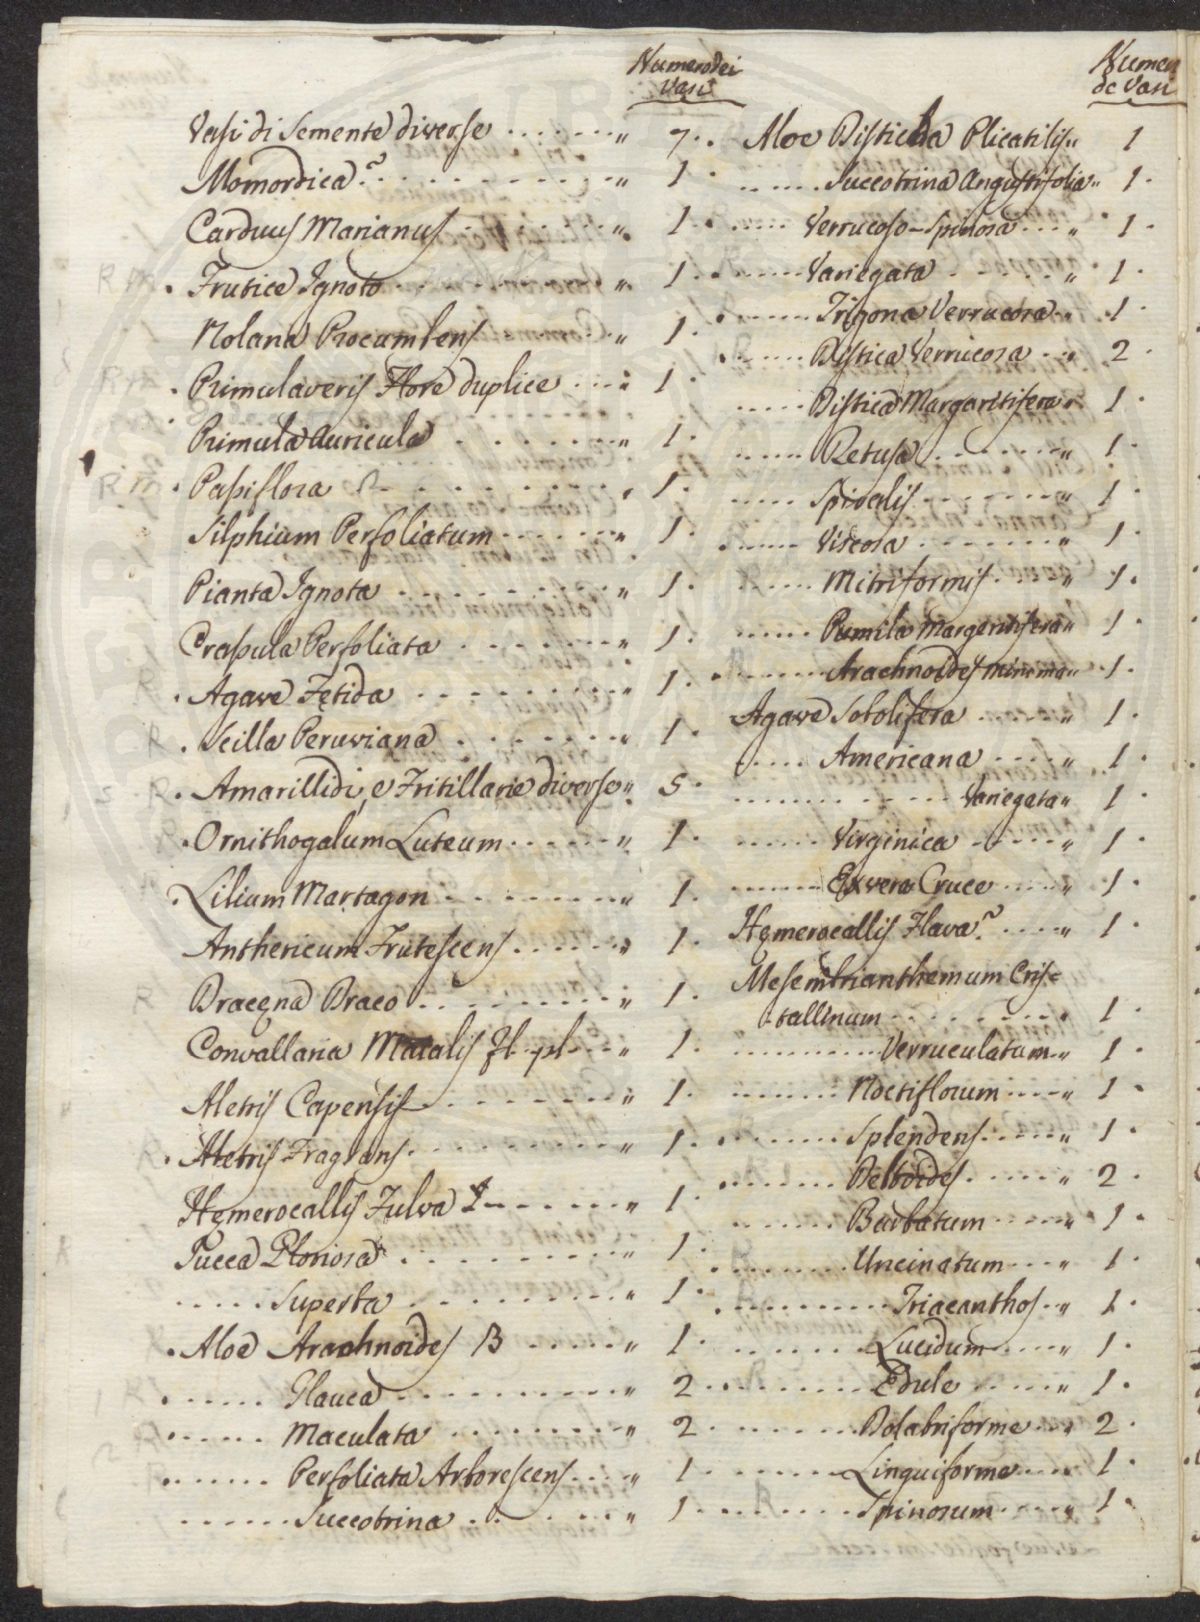 Numero dei
Vasi
Vasi di Semente diverse ........ " 7.
Momordica? ........ " 1.
Carduus Marianus ........ " 1.
. Frutice Ignoto ........ " 1.
Nolana Procumbens ........ " 1.
. Primulaveris Flore duplice .... " 1.
Primula Auricula ........ " 1.
. Passiflora ........ " 1.
Silphium Perfoliatum ........ " 1.
Pianta Ignota ........ " 1.
Crassula Perfoliata ........ " 1.
. Agave Fetida ........ " 1.
. Scilla Peruviana ........ " 1.
. Amarillidi, e Fritillarie diverse " 5.
. Ornithogalum Luteum ...... " 1.
. Lilium Martagon ........ " 1.
Anthericum Frutescens ...... " 1.
Dracena Draco ........ " 1.
Convallaria Maialis fl. pl. ... " 1.
Aletris Capensis ........ " 1.
. Aletris Fragrans ........ " 1.
Hemerocallis Fulva ...... " 1.
Jucca Gloriosa ........ " 1.
..... Superba ........ " 1.
. Aloe Arachnoides B ...... " 1.
...... Glauca ........ " 2.
...... Maculata ........ " 2.
...... Perfoliata Arborescens .... " 1.
...... Succotrina ........ " 1.
Numer
de Vasi
Aloe Disticha Plicatilis " 1
..... Succotrina Angustifolia " 1.
..... Verrucoso-Spinosa ... " 1.
..... Variegata ...... " 1.
...... Trigona Verrucosa " 1.
..... Distica Verrucosa ... " 2.
..... Distica Margaritifera " 1.
..... Retusa ........ " 1.
..... Spiralis ........ " 1.
..... Viscosa ........ " 1.
..... Mitriformis ...... " 1.
..... Pumila Margaritifera " 1.
...... Arachnoides minima " 1.
Agave Sobolifera ...... " 1.
..... Americana ..... " 1.
............ Variegata " 1.
...... Virginica ...... " 1.
...... Ex vera Cruce .... " 1.
Hemerocallis Flava? ..... " 1.
Mesembrianthemum Cris=
tallinum ........ " 1.
......... Verruculatum " 1.
........ Noctiflorum ..... " 1.
........ Splendens ..... " 1.
....... Deltoides ...... " 2.
...... Barbatum ..... " 1.
........ Uncinatum .... " 1.
.......... Triacanthos .. " 1.
....... Lucidum ..... " 1.
......... Edule ...... " 1.
........ Dolabriforme ... " 2.
....... Linguiforme ..... " 1.
........ Spinosum ..... " 1.